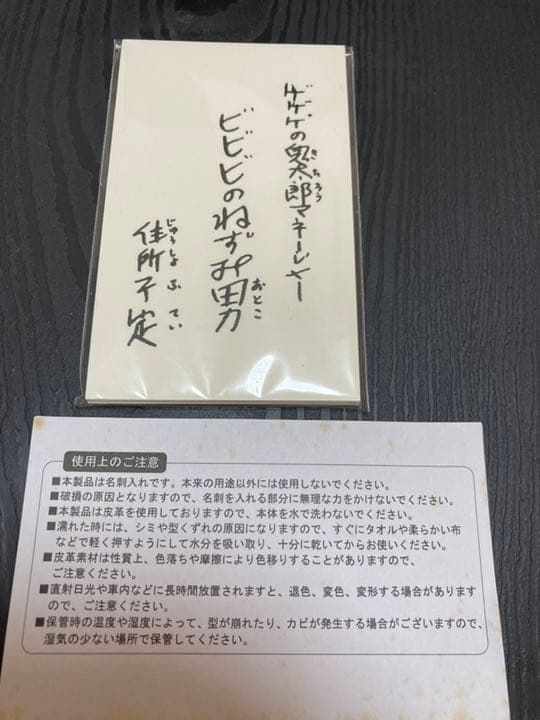 ゲゲゲの鬼太郎マネージャー
きたろう
ビビビのねずみ男
おとこ
住所不定
じゅうしょふてい
使用上のご注意
■本製品は名刺入れです。本来の用途以外には使用しないでください。
■破損の原因となりますので、名刺を入れる部分に無理な力をかけないでください。
■本製品は皮革を使用しておりますので、本体を水で洗わないでください。
■濡れた時には、シミや型くずれの原因になりますので、すぐにタオルや柔らかい布
などで軽く押すようにして水分を吸い取り、十分に乾いてからお使いください。
■皮革素材は性質上、色落ちや摩擦により色移りすることがありますので、
ご注意ください。
■直射日光や車内などに長時間放置されますと、退色、変色、変形する場合があります
ので、ご注意ください。
■保管時の温度や湿度によって、型が崩れたり、カビが発生する場合がございますので、
湿気の少ない場所で保管してください。